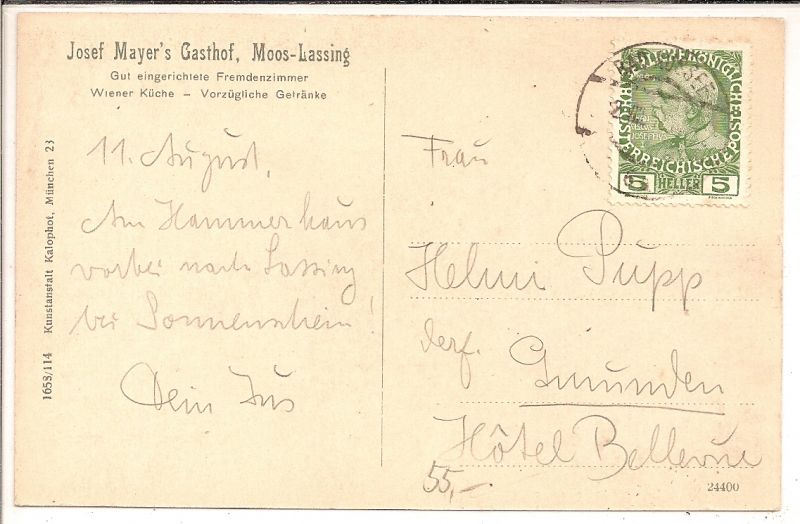 Josef Mayer's Gasthof, Moos-Lassing
Gut eingerichtete Fremdenzimmer
Wiener Küche – Vorzügliche Getränke
11. August,
Am Hammerhaus
vorbei nach Lassing
bei Sonnenschein!
Dein Jus
1653/114 Kunstanstalt Kalophot, München 23
KAISERLICHE KÖNIGLICHE
ÖSTERREICHISCHE POST
5 HELLER 5
Frau
Helmi Pupp
derf.
Gmunden
Hôtel Bellevue
55,–
24400